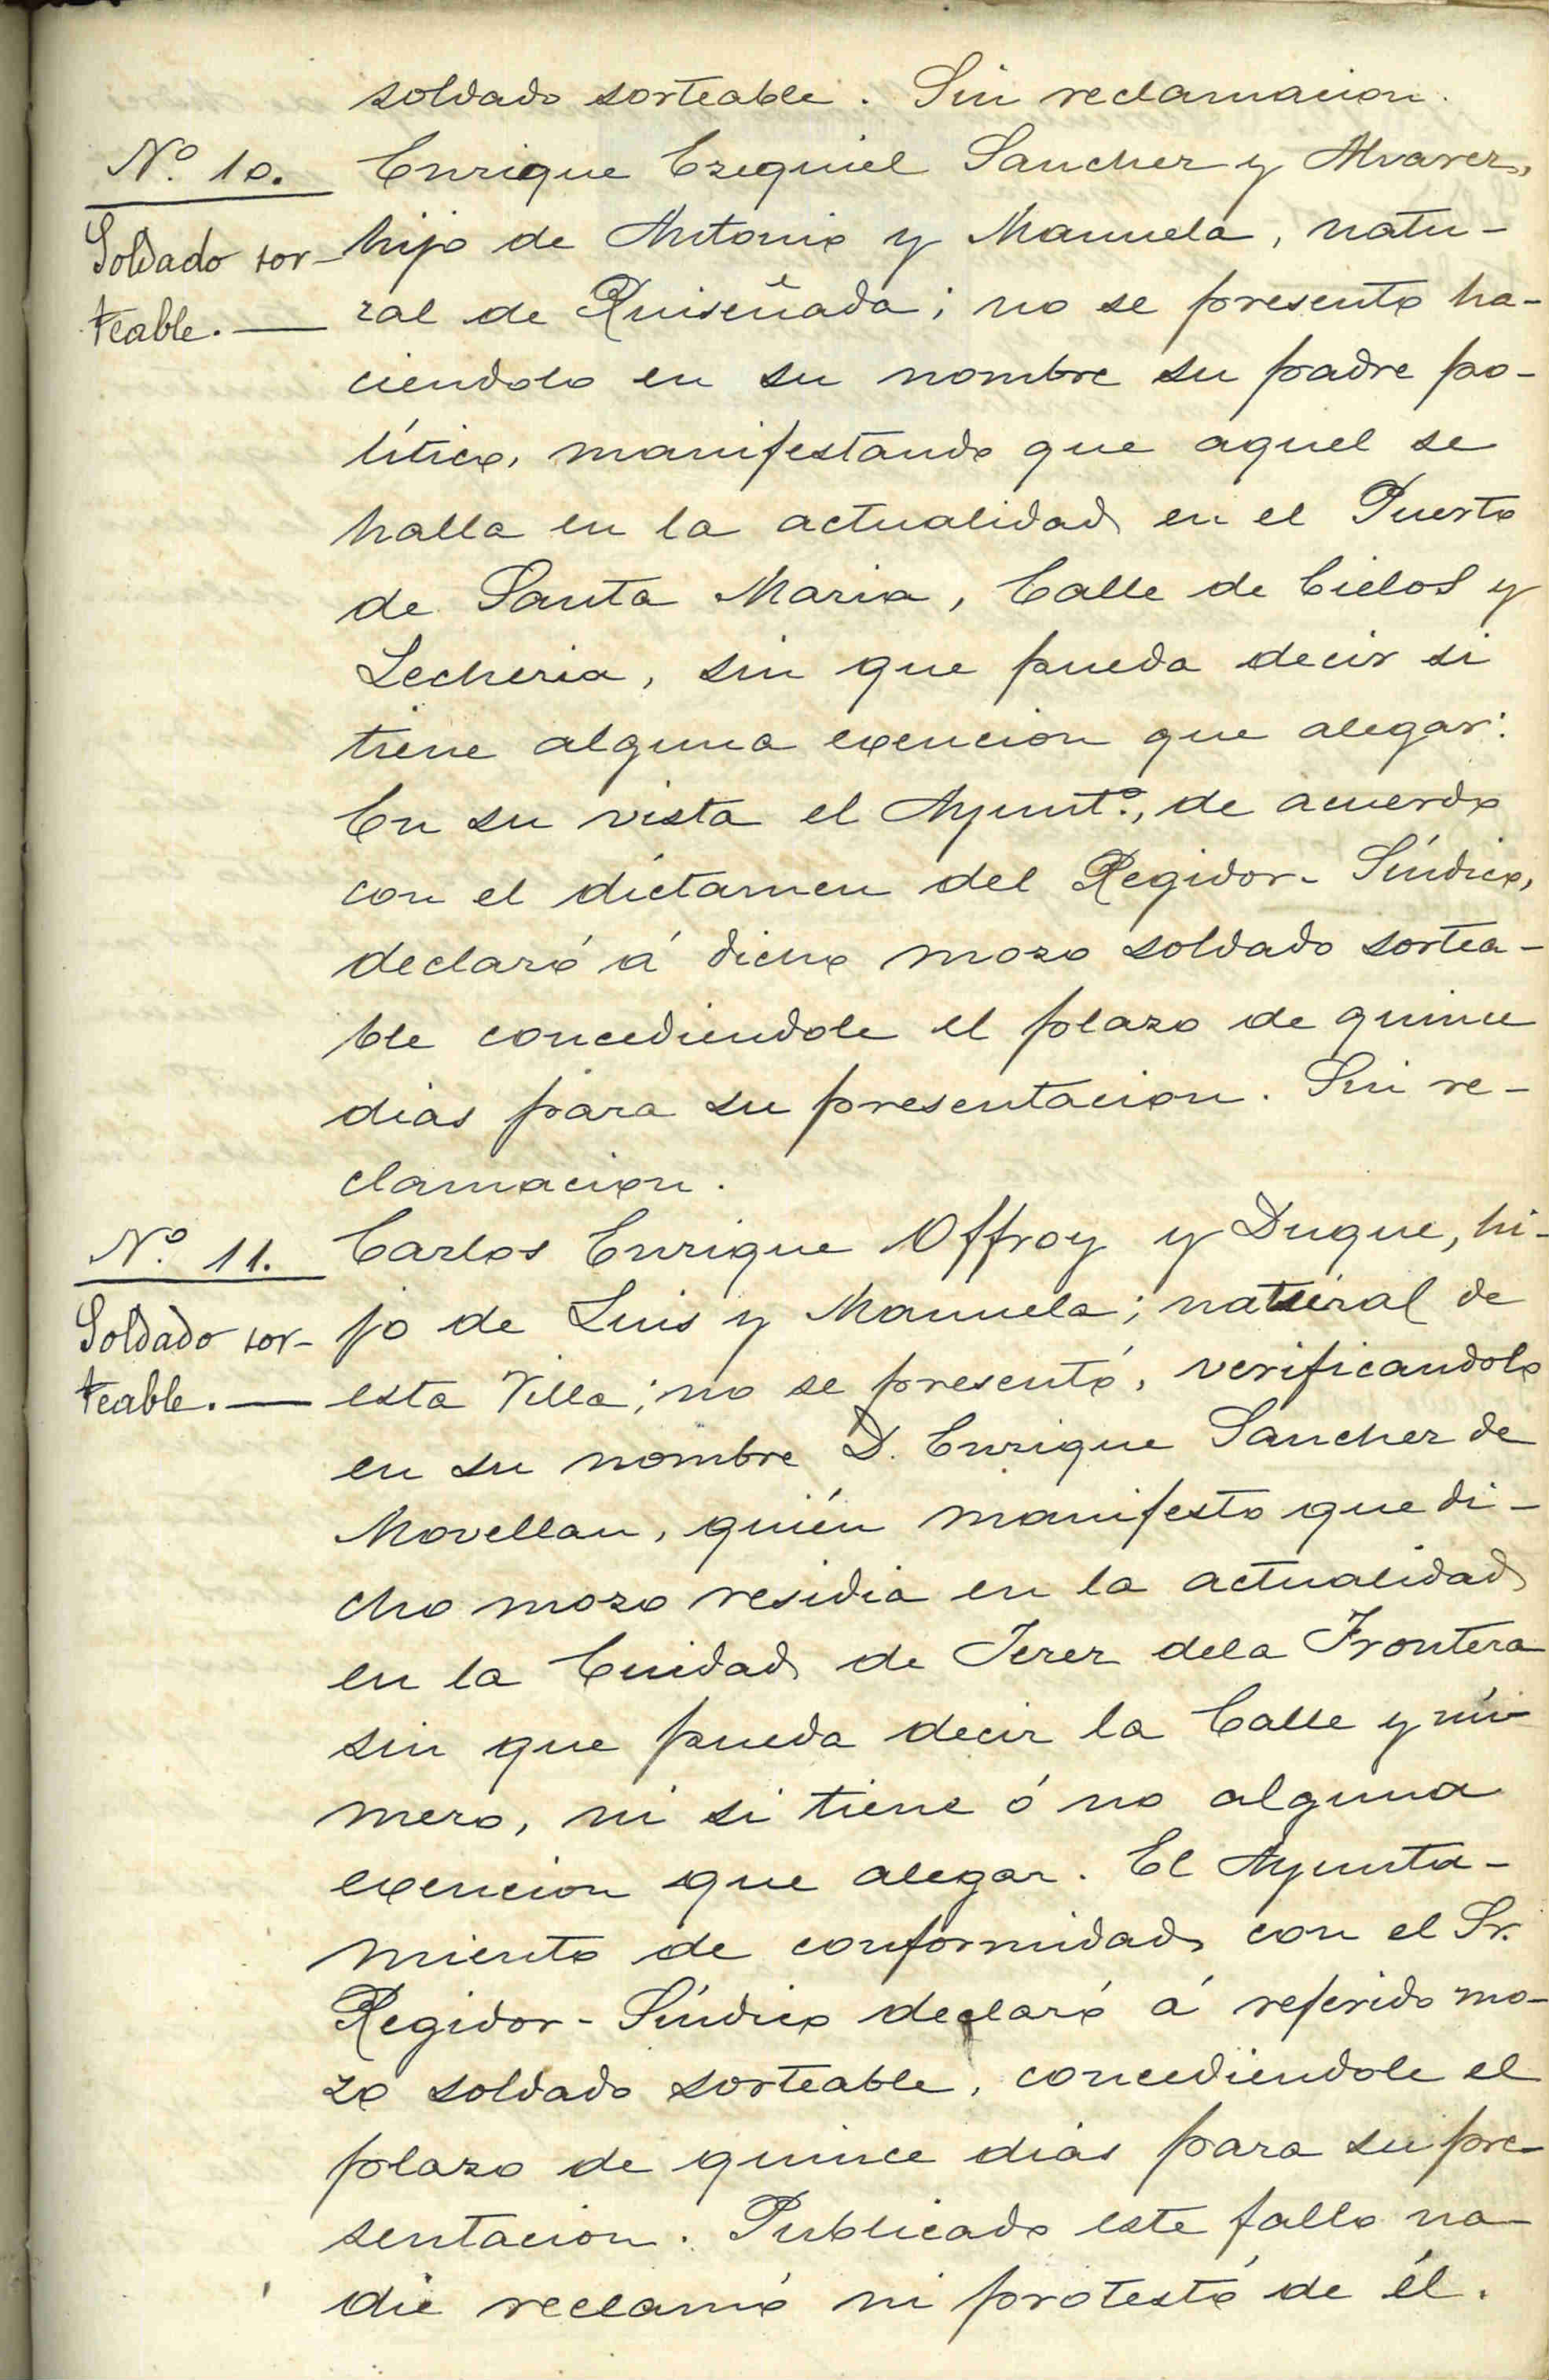 soldado sorteable. Sin reclamacion.
Nº 10. Enrique Ezequiel Sanchez y Alvarez,
Soldado sor- hijo de Antonio y Manuela, natu-
teable.— ral de Ruiseñada; no se presento ha-
ciendolo en su nombre su padre po-
lítico, manifestando que aquel se
halla en la actualidad en el Puerto
de Santa Maria, Calle de Cielos y
Lecheria, sin que pueda decir si
tiene alguna exencion que alegar:
En su vista el Ayuntº., de acuerdo
con el dictamen del Regidor-Síndico,
declaró á dicho mozo soldado sortea-
ble concediendole el plazo de quince
dias para su presentacion. Sin re-
clamacion.
Nº 11. Carlos Enrique Offroy y Duque, hi-
Soldado sor- jo de Luis y Manuela; natural de
teable.— esta Villa; no se presentó, verificandolo
en su nombre D. Enrique Sanchez de
Movellan, quién manifesto que di-
cho mozo residia en la actualidad
en la Cuidad de Jerez dela Frontera
sin que pueda decir la Calle y nú-
mero, ni si tiene ó no alguna
exencion que alegar. El Ayunta-
miento de conformidad con el Sr.
Regidor-Síndico declaró á referido mo-
zo soldado sorteable, concediendole el
plazo de quince dias para su pre-
sentacion. Publicado este fallo na-
die reclamó ni protestó de él.